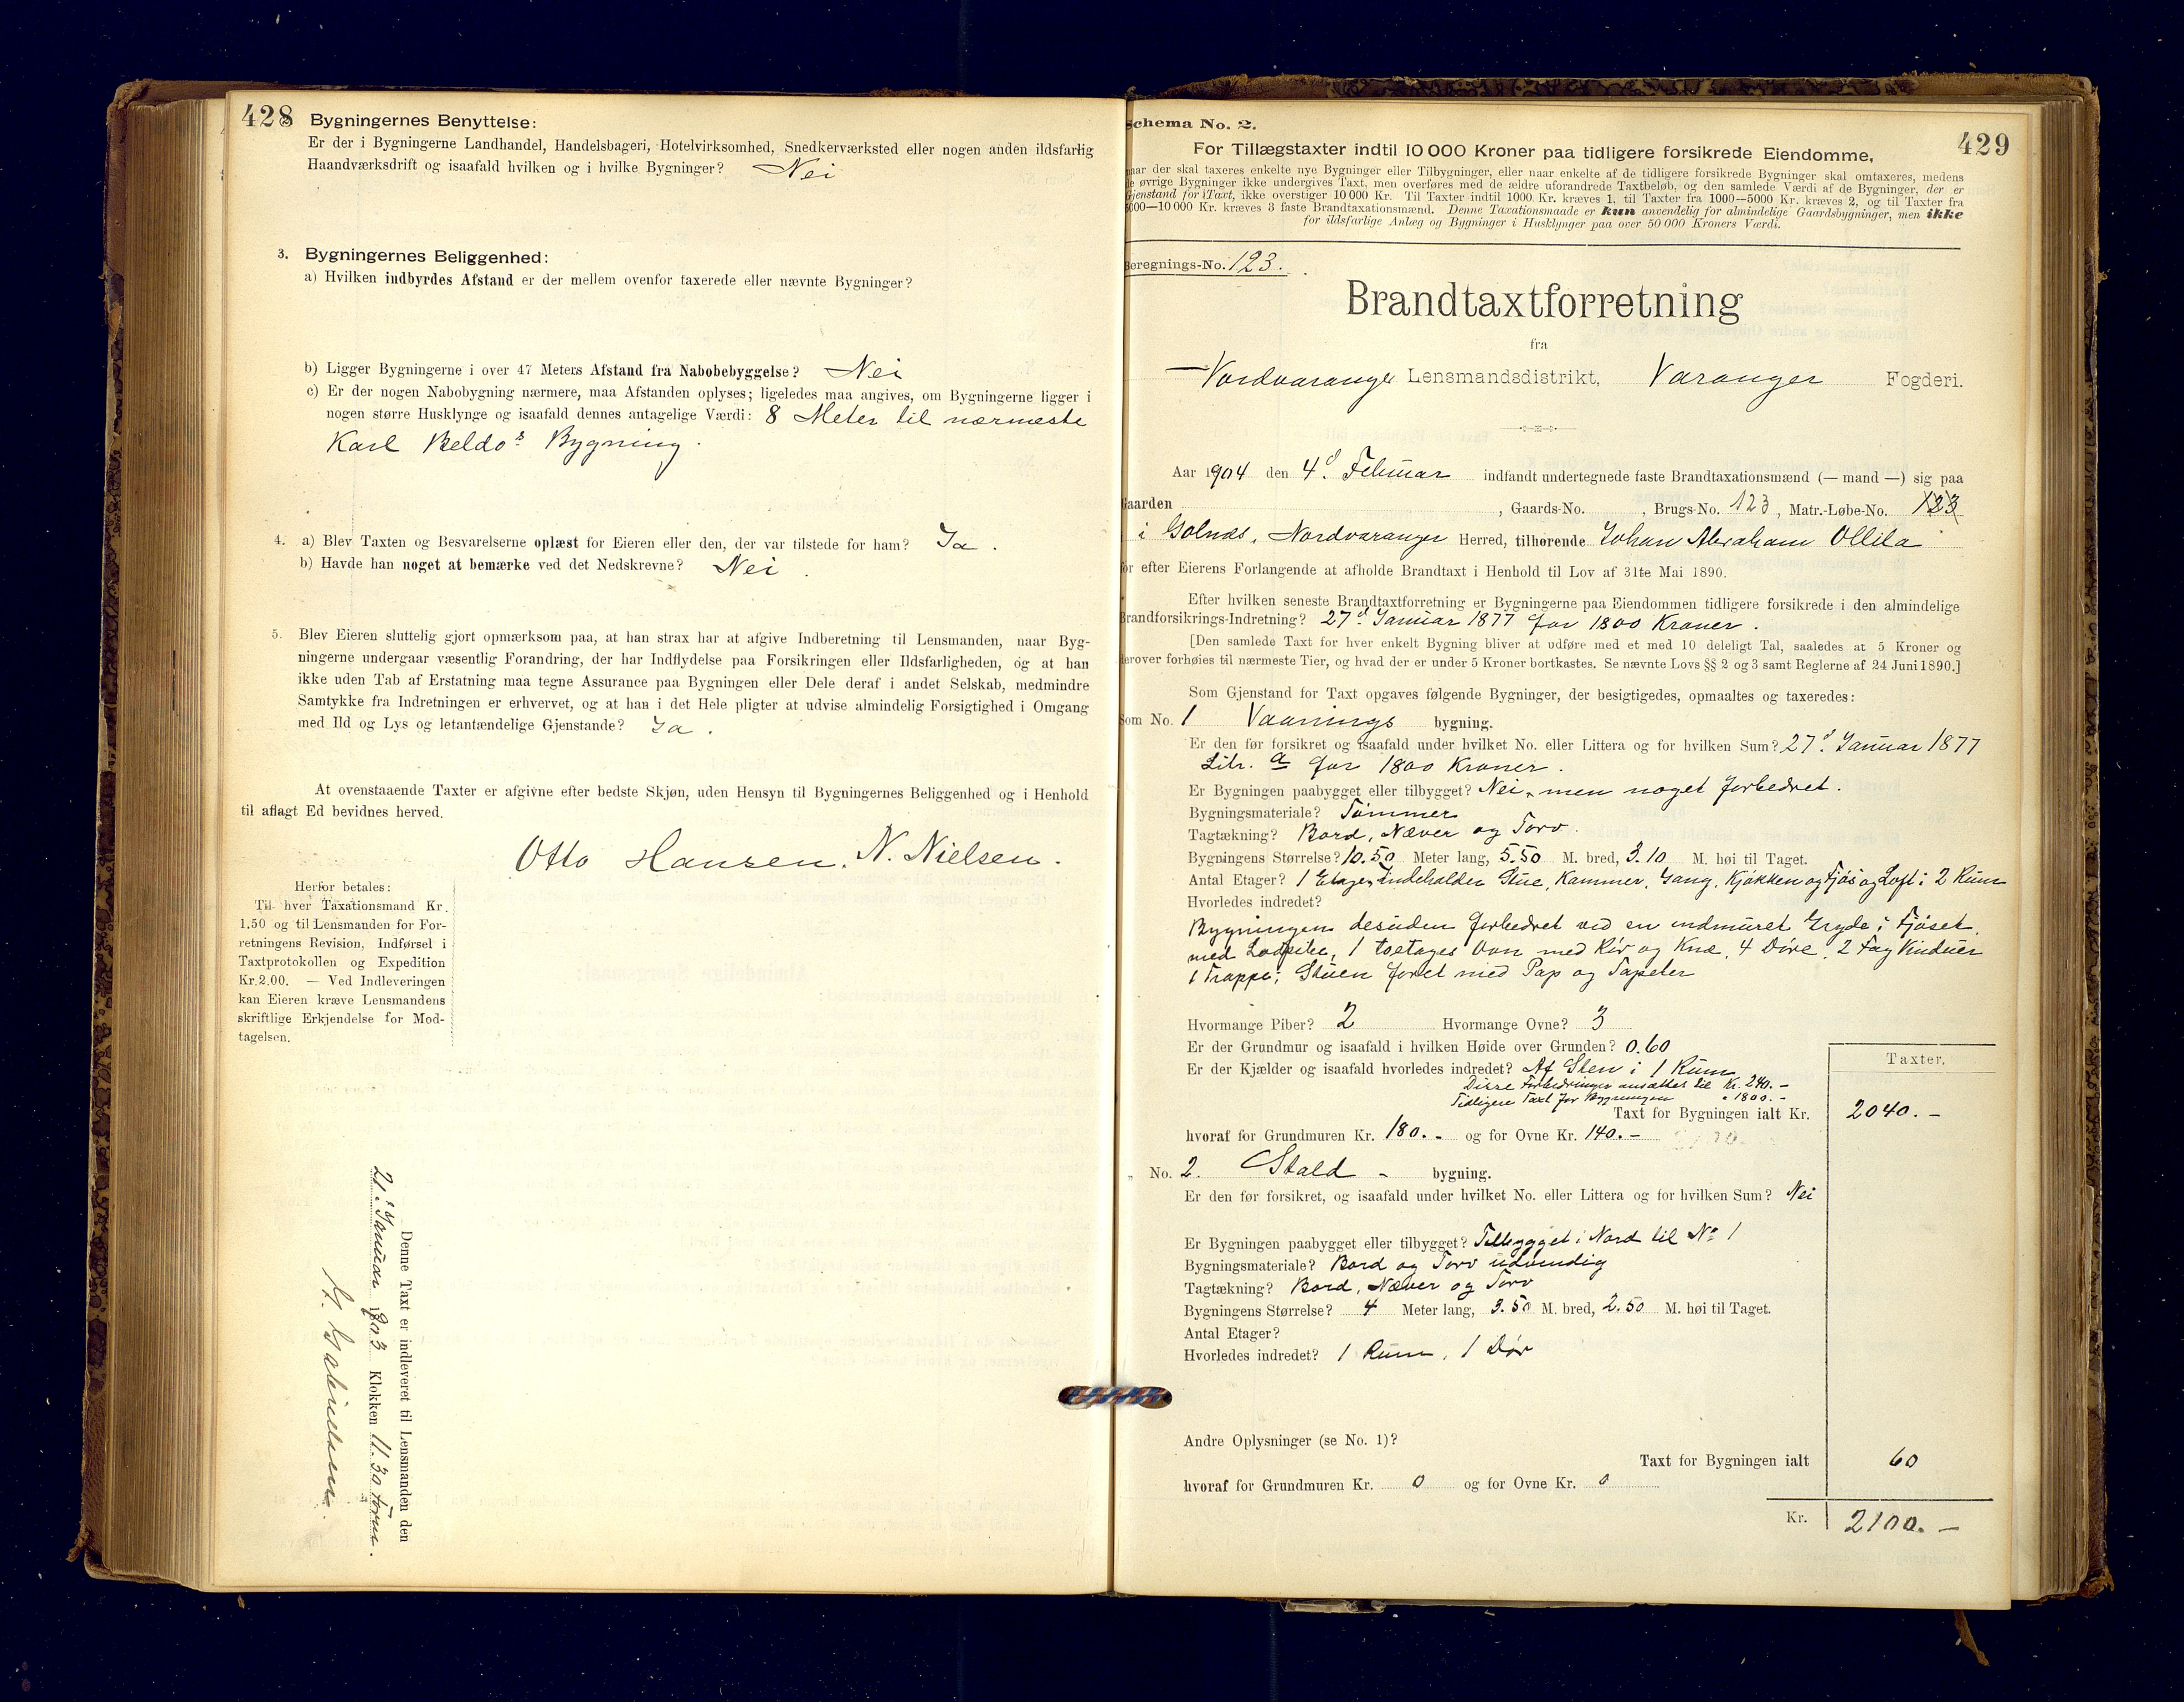 428
Bygningernes Benyttelse:
Er der i Bygningerne Landhandel, Handelsbageri, Hotelvirksomhed, Snedkerværksted eller nogen anden ildsfarlig
Haandværksdrift og isaafald hvilken og i hvilke Bygninger? Nei
3. Bygningernes Beliggenhed:
a) Hvilken indbyrdes Afstand er der mellem ovenfor taxerede eller nævnte Bygninger?
b) Ligger Bygningerne i over 47 Meters Afstand fra Nabobebyggelse? Nei
c) Er der nogen Nabobygning nærmere, maa Afstanden oplyses; ligeledes maa angives, om Bygningerne ligger i
nogen større Husklynge og isaafald dennes antagelige Værdi: 8 Meter til nærmeste
Karl Beldos Bygning.
4. a) Blev Taxten og Besvarelserne oplæst for Eieren eller den, der var tilstede for ham? Ja.
b) Havde han noget at bemærke ved det Nedskrevne? Nei.
5. Blev Eieren sluttelig gjort opmærksom paa, at han strax har at afgive Indberetning til Lensmanden, naar Byg-
ningerne undergaar væsentlig Forandring, der har Indflydelse paa Forsikringen eller Ildsfarligheden, og at han
ikke uden Tab af Erstatning maa tegne Assurance paa Bygningen eller Dele deraf i andet Selskab, medmindre
Samtykke fra Indretningen er erhvervet, og at han i det Hele pligter at udvise almindelig Forsigtighed i Omgang
med Ild og Lys og letantændelige Gjenstande? Ja.
At ovenstaaende Taxter er afgivne efter bedste Skjøn, uden Hensyn til Bygningernes Beliggenhed og i Henhold
til aflagt Ed bevidnes herved.
Otto Hansen. N. Nielsen.
Herfor betales:
Til hver Taxationsmand Kr.
1.50 og til Lensmanden for For-
retningens Revision, Indførsel i
Taxtprotokollen og Expedition
Kr. 2.00. — Ved Indleveringen
kan Eieren kræve Lensmandens
skriftlige Erkjendelse for Mod-
tagelsen.
Denne Taxt er indleveret til Lensmanden den
21. Januar 1903 Klokken 11.30 Form.
429
Schema No. 2.
For Tillægstaxter indtil 10 000 Kroner paa tidligere forsikrede Eiendomme,
naar der skal taxeres enkelte nye Bygninger eller Tilbygninger, eller naar enkelte af de tidligere forsikrede Bygninger skal omtaxeres, medens
de øvrige Bygninger ikke undergives Taxt, men overføres med de ældre uforandrede Taxtbeløb, og den samlede Værdi af de Bygninger, der er
Gjenstand for Taxt, ikke overstiger 10 000 Kr. Til Taxter indtil 1000 Kr. kræves 1, til Taxter fra 1000—5000 Kr. kræves 2, og til Taxter fra
5000—10 000 Kr. kræves 3 faste Brandtaxationsmænd. Denne Taxationsmaade er kun anvendelig for almindelige Gaardsbygninger, men ikke
for ildsfarlige Anlæg og Bygninger i Husklynger paa over 50 000 Kroners Værdi.
Beregnings-No. 123.
Brandtaxtforretning
fra
Nordvaranger Lensmandsdistrikt, Varanger Fogderi.
Aar 1904 den 4d. Februar indfandt undertegnede faste Brandtaxationsmænd (— mand —) sig paa
Gaarden , Gaards-No. , Brugs-No. 123, Matr.-Løbe-No. 123
i Golnæs, Nordvaranger Herred, tilhørende Johan Abraham Ollila
for efter Eierens Forlangende at afholde Brandtaxt i Henhold til Lov af 31te Mai 1890.
Efter hvilken seneste Brandtaxtforretning er Bygningerne paa Eiendommen tidligere forsikrede i den almindelige
Brandforsikrings-Indretning? 27d. Januar 1877 for 1800 Kroner.
[Den samlede Taxt for hver enkelt Bygning bliver at udføre med et med 10 deleligt Tal, saaledes at 5 Kroner og
derover forhøies til nærmeste Tier, og hvad der er under 5 Kroner bortkastes. Se nævnte Lovs §§ 2 og 3 samt Reglerne af 24 Juni 1890.]
Som Gjenstand for Taxt opgaves følgende Bygninger, der besigtigedes, opmaaltes og taxeredes:
Som No. 1 Vaanings bygning.
Er den før forsikret og isaafald under hvilket No. eller Littera og for hvilken Sum? 27d. Januar 1877
Litr. a for 1800 Kroner.
Er Bygningen paabygget eller tilbygget? Nei, men noget forbedret.
Bygningsmateriale? Tømmer
Tagtækning? Bord, Næver og Torv.
Bygningens Størrelse? 10.50 Meter lang, 5.50 M. bred, 3.10 M. høi til Taget.
Antal Etager? 1 Etage, Indeholder Stue, Kammer, Gang, Kjøkken og Fjøs og Loft i 2 Rum
Hvorledes indredet?
Bygningen desuden forbedret ved en indmuret Gryde i Fjøset,
med Lodpibe, 1 toetages Ovn med Rør og Knæ, 4 Døre, 2 Fag Vinduer
1 Trappe; Stuen foret med Pap og Tapeter
Hvormange Piber? 2 Hvormange Ovne? 3
Er der Grundmur og isaafald i hvilken Høide over Grunden? 0.60
Er der Kjælder og isaafald hvorledes indredet? Af Sten i 1 Rum
Disse Forbedringer ansættes til Kr. 240.-
Tidligere Taxt for Bygningen " 1800.-
Taxter.
Taxt for Bygningen ialt Kr. 2040.-
hvoraf for Grundmuren Kr. 180.- og for Ovne Kr. 140.-
" No. 2. Stald - bygning.
Er den før forsikret, og isaafald under hvilket No. eller Littera og for hvilken Sum? Nei
Er Bygningen paabygget eller tilbygget? Tilbygget i Nord til No 1
Bygningsmateriale? Bord og Torv udvendig
Tagtækning? Bord, Næver og Torv
Bygningens Størrelse? 4 Meter lang, 3.50 M. bred, 2.50 M. høi til Taget.
Antal Etager?
Hvorledes indredet? 1 Rum, 1 Dør
Andre Oplysninger (se No. 1)?
Taxt for Bygningen ialt 60
hvoraf for Grundmuren Kr. 0 og for Ovne Kr. 0
Kr. 2100.-